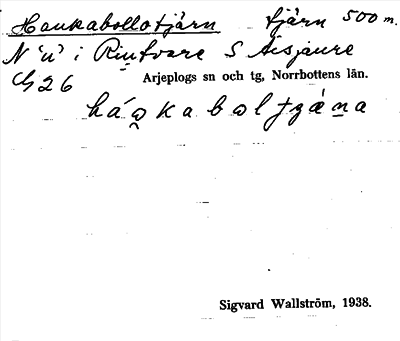 Haukabollotjärn tjärn 500 m.
N "u" i Rintvare S Aisjaure
Arjeplogs sn och tg, Norrbottens län.
Sigvard Wallström, 1938.